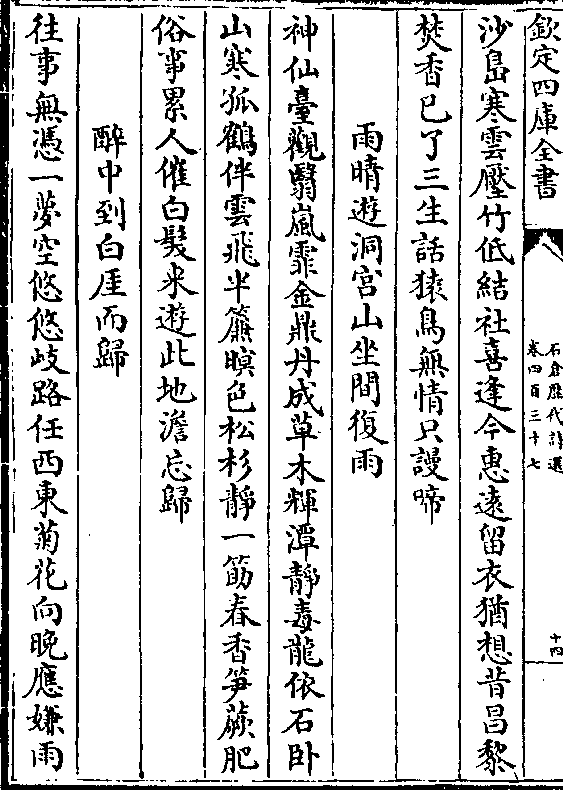 欽定四庫全書
石倉歷代詩選
卷四百三十七
十四
沙島寒雲壓竹低結社喜逢今惠遠留衣猶想昔昌黎
焚香已了三生話猿鳥無情只謾啼
雨晴遊洞宫山坐間復雨
神仙臺觀翳嵐霏金鼎丹成草木輝潭靜毒龍依石卧
山寒孤鶴伴雲飛半簾暝色松杉靜一筯春香笋蕨肥
俗事累人催白髮來遊此地澹忘歸
醉中到白厓而歸
往事無憑一夢空悠悠歧路任西東菊花向晚應嫌雨